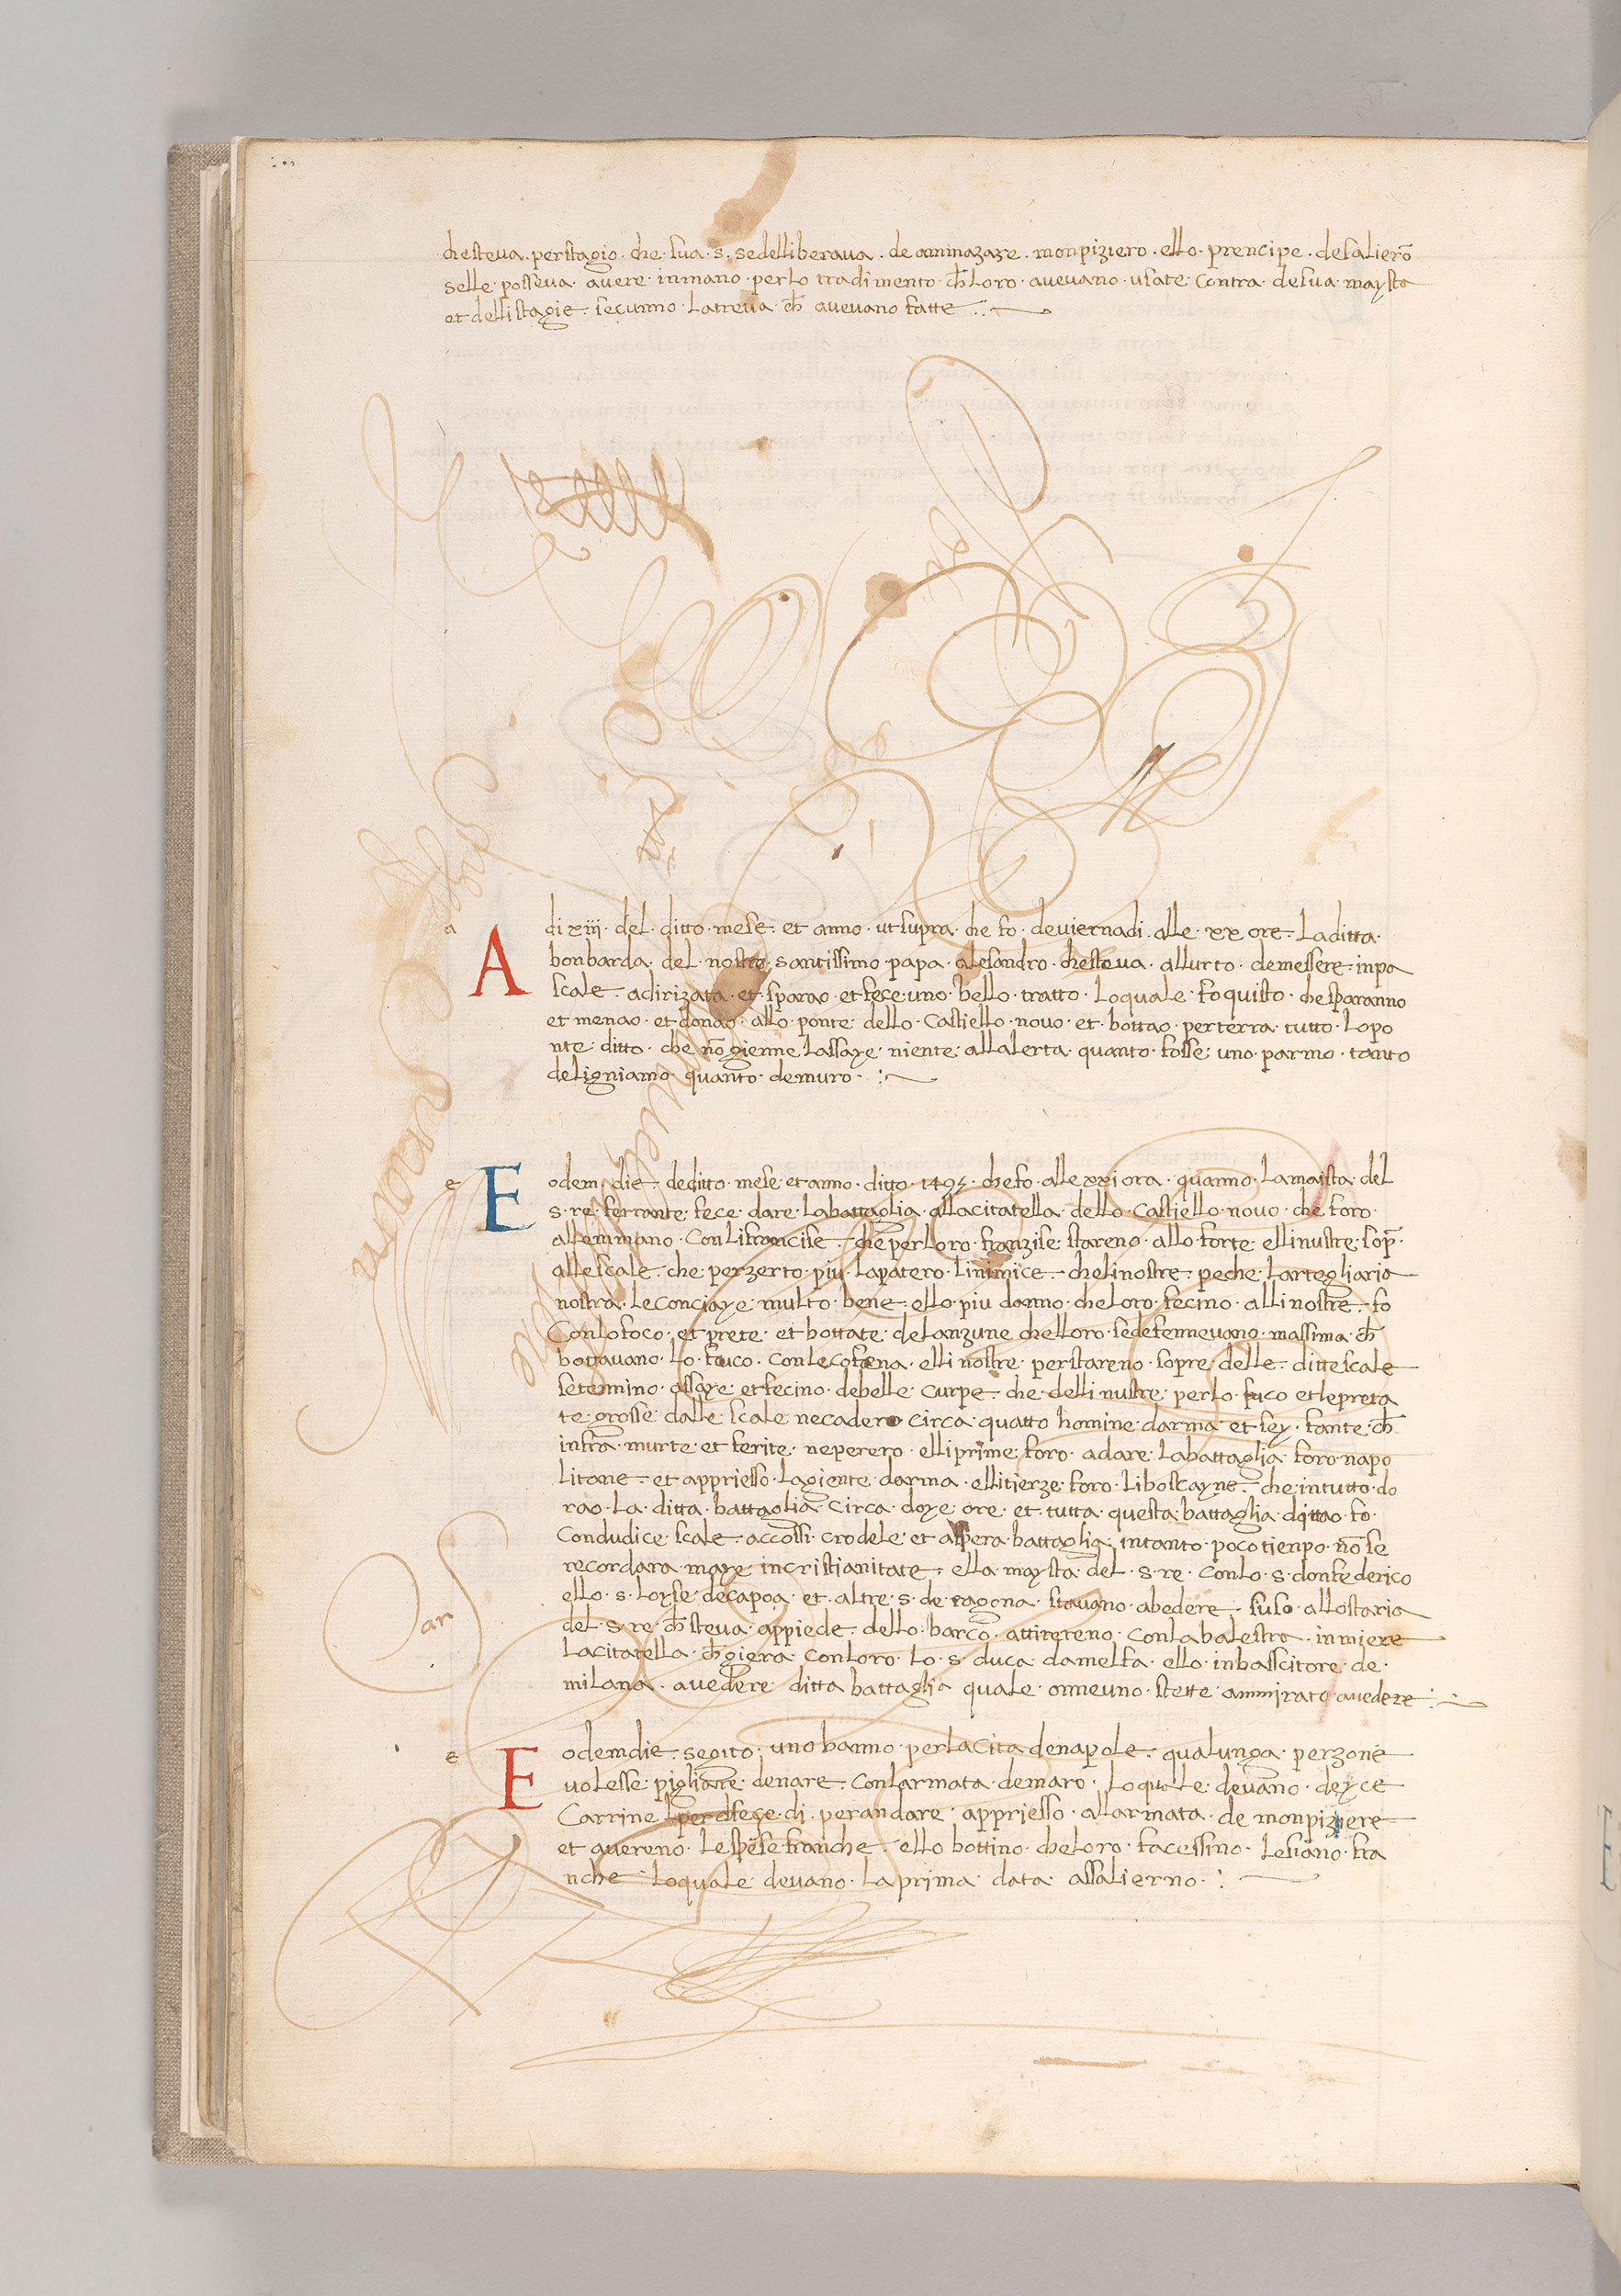 che steva . per stagio . che . sua . s . se delliberava . de ammazare . monpiziero . ello . prencipe . de salierō
selle . posseva . avere . in mano . per lo tradimento . ch̄ loro . avevano . usate . contra . de sua . maysta
et delli stagie . secunno . la treva . ch̄ avevano fatte
a
A di xiij . del . ditto . mese . et anno . ut supra . che fo . de viernadi . alle . xx ore . la ditta .
bonbarda . del . nostro . santissimo . papa . alesandro . che steva . all urto . de messere . in pa
scale . adirizata . et . sparao . et fece . uno . bello . tratto . lo quale . fo quisto . che sparanno
et menao . et donao . allo . ponte . dello . castiello . novo . et . bottao . per terra . tutto . lo po
nte . ditto . che nō gienne . lassaye . niente . all alerta . quanto . fosse . uno . parmo . tanto
de ligniamo . quanto . de muro .
e
Eodem . die . de ditto . mese . et anno . ditto . 1495 . che fo . alle xxi ora . quanno . la maista . del
s . re . ferrante . fece . dare . la battaglia . alla citatella . dello . castiello . novo . che foro .
alle mmano . con li francise . che per loro . franzise . stareno . allo . forte . elli nustre . sop̄ .
alle scale . che . per zerto . piu . la patero . l inimice . che li nostre . peche . l artegliaria
nostra . le conciaye . multo . bene . ello . piu danno . che loro . fecino . alli nostre . fo
con lo foco . et prete . et bottate . de lanzune che lloro . se defennevano . massima . ch̄
bottavano . lo . fuoco . con le cofena . elli nostre . per stareno . sopre . delle . ditte scale
se tennino . assaye . et fecino . de belle . curpe . che . delli nustre . per lo . fuco et le preta
te . grosse . dalle . scale ne cadero circa . quatto homine . darma . et sey . fante . ch̄
infra . murte . et ferite . ne perero . elli prime . foro . a dare . la battaglia . foro . napo
litane . et appriesso . la giente . darma . elli tierze . foro . li boscayne . che in tutto . do
rao . la . ditta . battaglia . circa . doye . ore . et . tutta . questa . battaglia . dittao . fo .
con dudice . scale . accossi . crodele . et aspera . battaglia . in tanto . poco tienpo . nō se
recordara . maye . in cristianitate . ella . maysta . del . s . re . con lo . s . don federico
ello . s . loyse . de capoa . et . altre . s . de . ragona . stavano . a bedere . suso . all ostaria
del . s . re . ch̄ steva . appiede . dello . barco . attirereno . con la balestra . in miere
la citatella . ch̄ giera . con loro . lo . s . duca . da melfa . ello . inbasscitore . de .
milana . a vedere . ditta battaglia quale . onneuno . stette ammirato a vedere
e
Eodem die . segito . uno banno . per la cita de napole . qualunga . perzone
volesse . pigliare . denare . con l armata . de maro . lo quale . devano . deyce
carrine di . per andare . appriesso . all armata . de monpiziere
et avereno . le spese franche . ello bottino . che loro . facessino . le siano . fra
nche . lo quale . devano . la prima . data . assalierno .